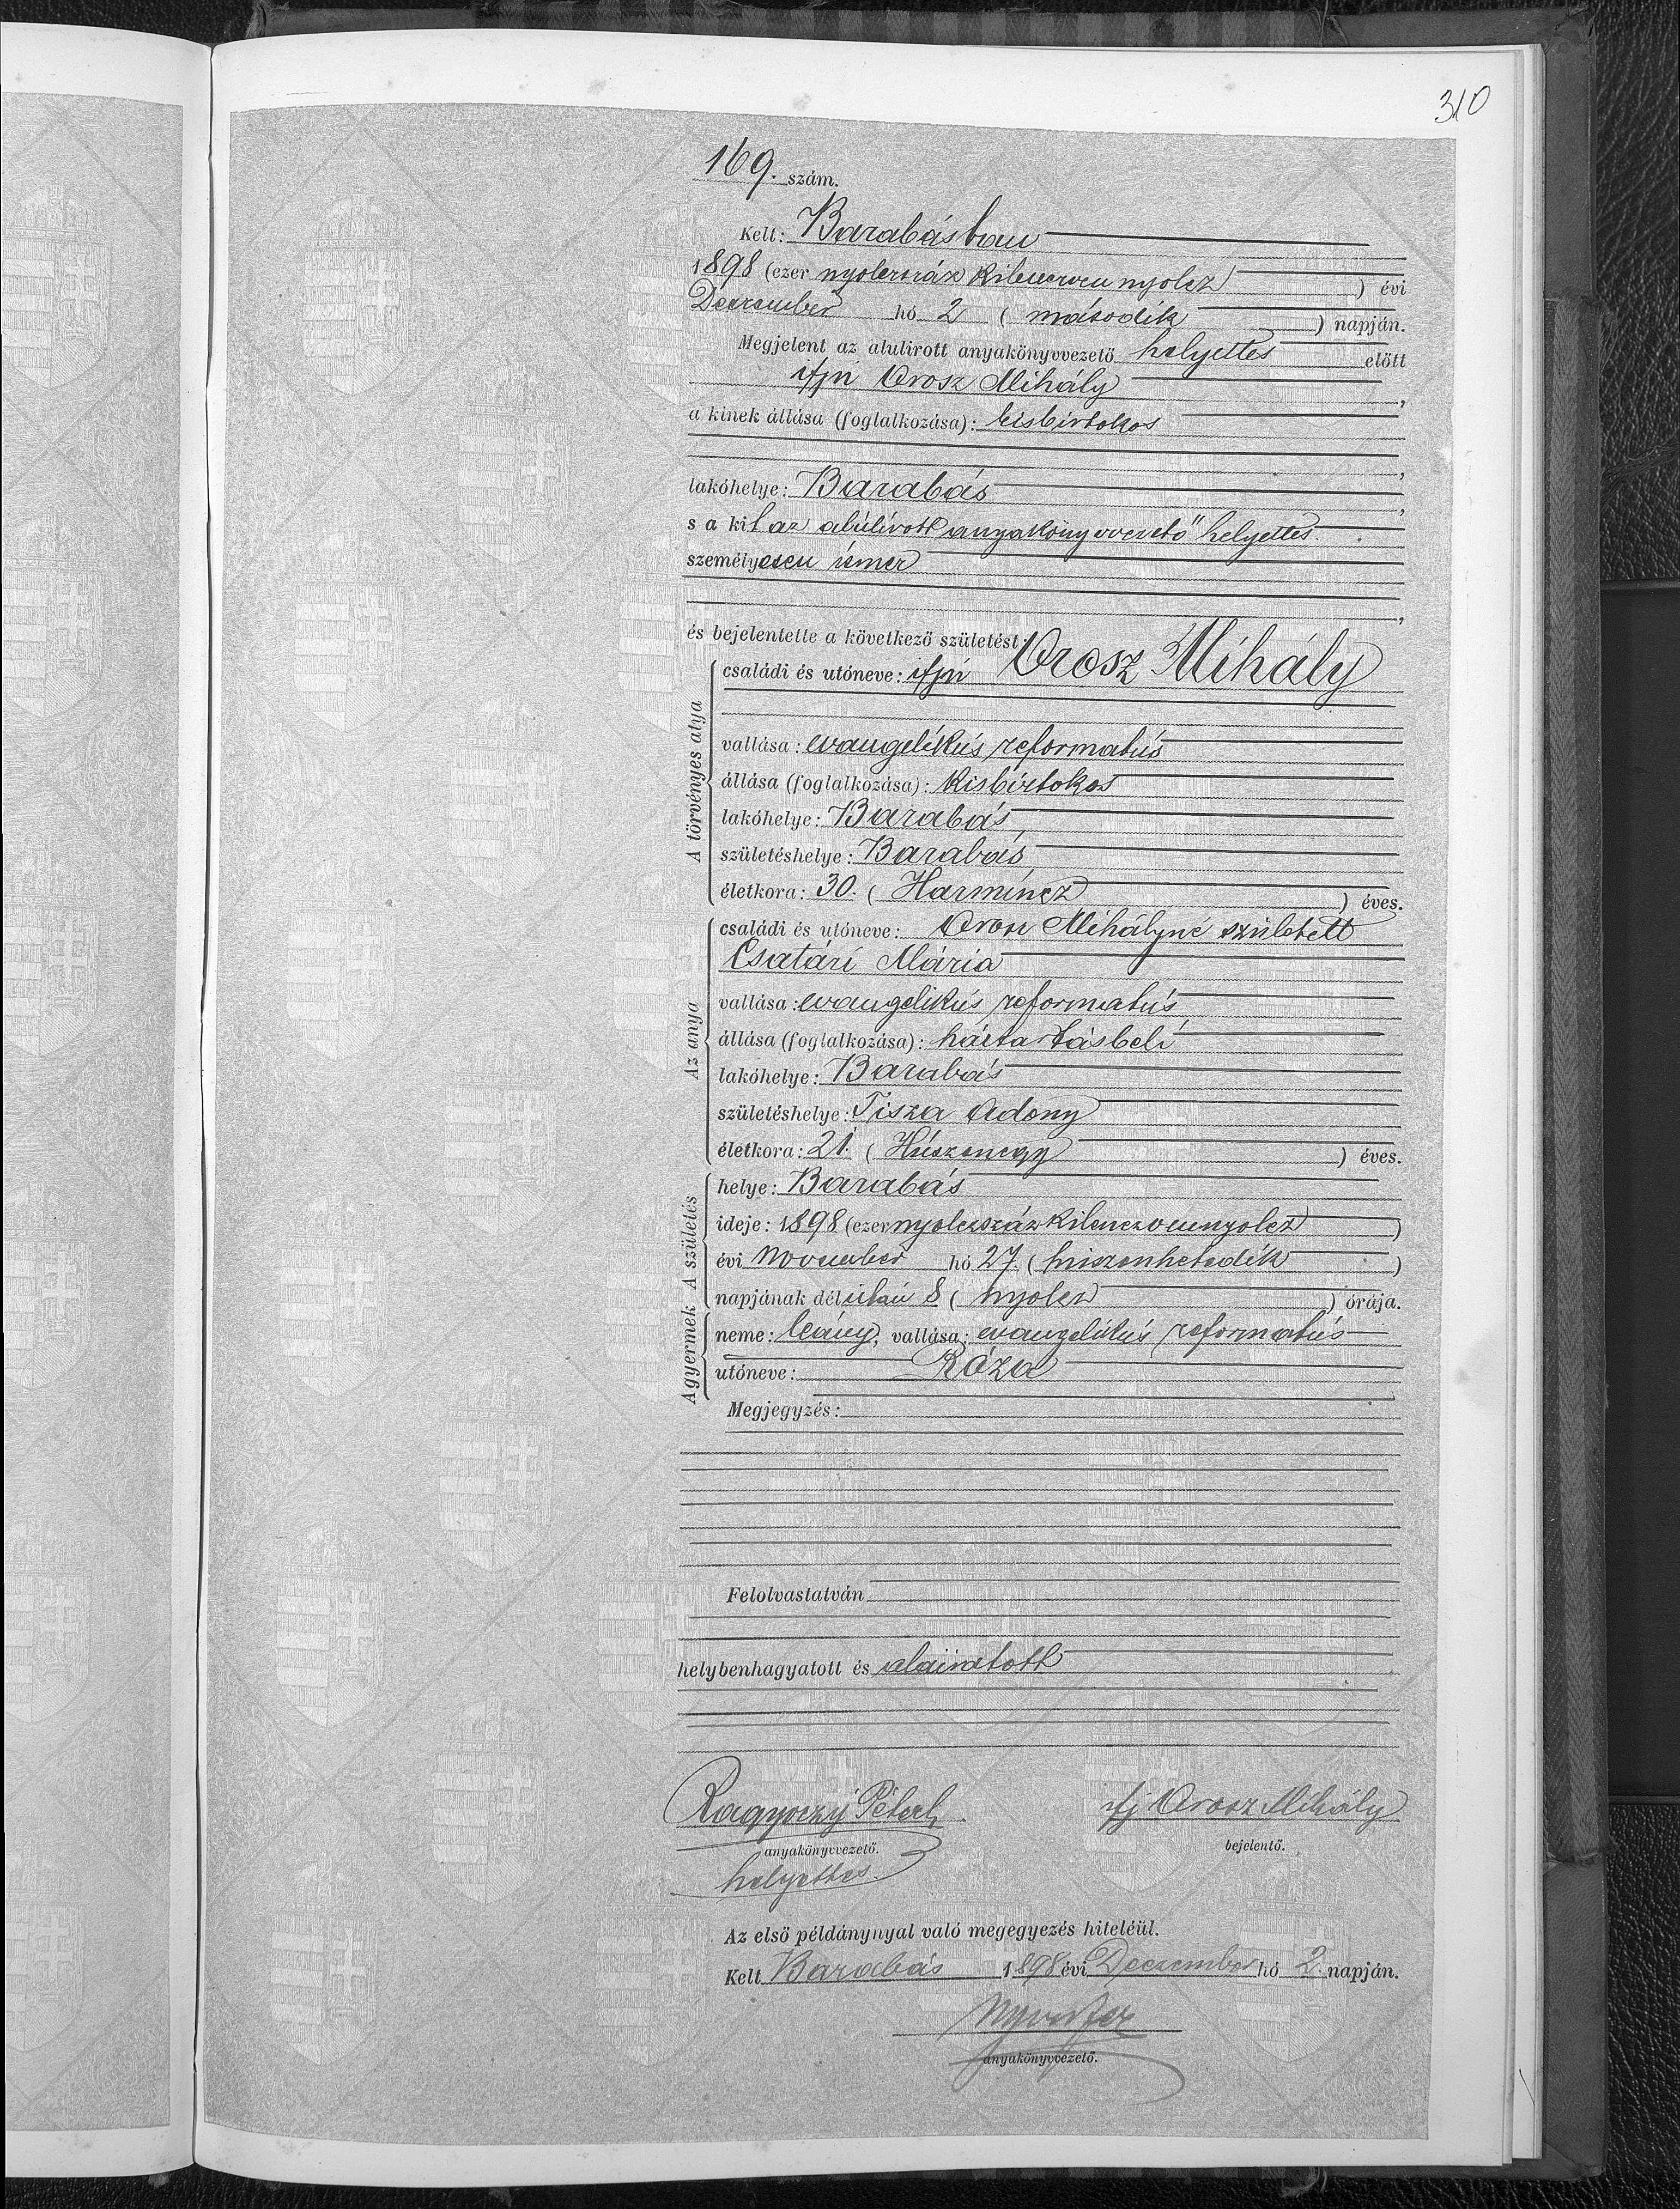 310
169. szám.
Kelt: Barabásban
1898 (ezer nyolczszáz kilenczven nyolcz) évi
Deczember hó 2 (második) napján.
Megjelent az alulirott anyakönyvvezető helyettes előtt
ifjú Orosz Mihály,
a kinek állása (foglalkozása): kisbirtokos
,
lakóhelye: Barabás,
s a kit az alúlírott anyakönyvvezető helyettes
személyesen ismer
,
és bejelentette a következő születést:
A törvényes atya
családi és utóneve: ifjú Orosz Mihály
vallása: evangelikús reformatús
állása (foglalkozása): kisbírtokos
lakóhelye: Barabás
születéshelye: Barabás
életkora: 30. (Harmíncz) éves.
Az anya
családi és utóneve: Orosz Mihályné született
Csatári Mária
vallása: evangelikús reformatús
állása (foglalkozása): háztartásbeli
lakóhelye: Barabás
születéshelye: Tisza Adony
életkora: 21. (Húszonegy) éves.
A születés
helye: Barabás
ideje: 1898 (ezer nyolczszáz kilenczvennyolcz)
évi November hó 27. (húszonhetedik)
napjának délután 8 (nyolcz) órája.
A gyermek
neme: leány, vallása: evangelikús reformatús
utóneve: Róza
Megjegyzés:
Felolvastatván
helybenhagyatott és aláiratott
Péter ifj Orosz Mihály
anyakönyvvezető. bejelentő.
helyettes.
Az első példánynyal való megegyezés hiteléül.
Kelt Barabás 1898 évi Deczember hó 2. napján.
anyakönyvvezető.